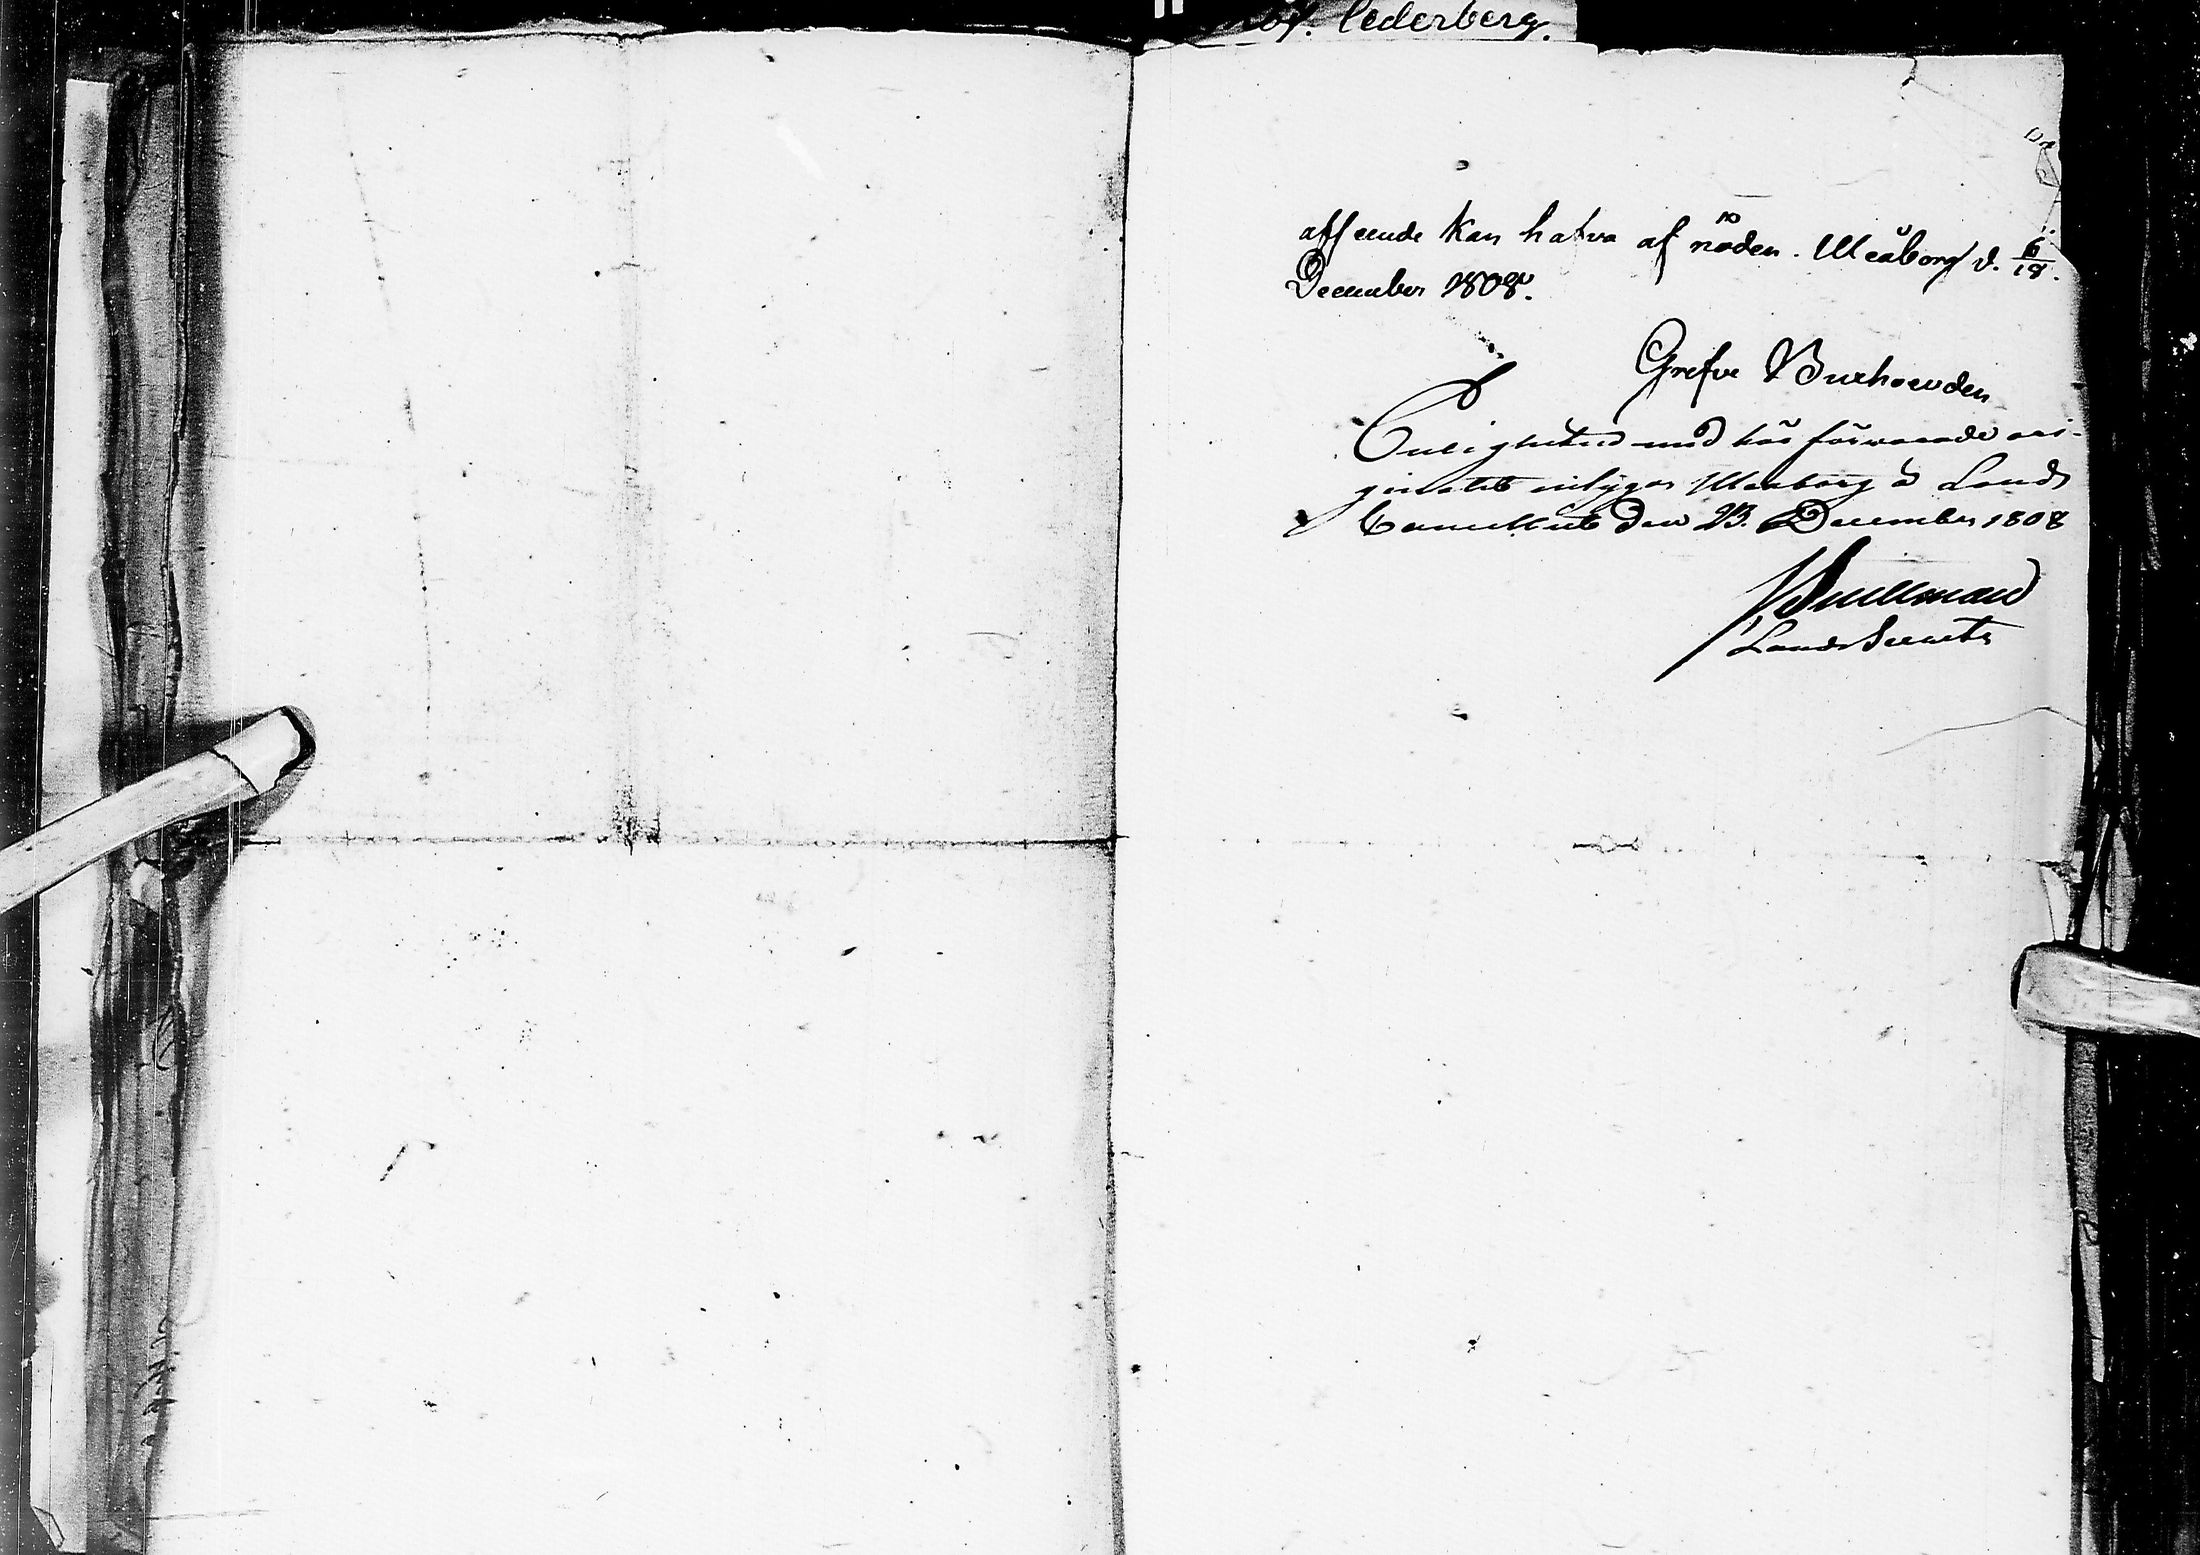 Cederberg.
afseende kan hafva af nöden. Uleåborg d. 6/18.
December 1808.
Grefve Buxhoevden
Enligheten med här förwarade ori-
ginalet intygar Uleåborg å Lands
Cancelliet den 23. December 1808
Lands Secreter